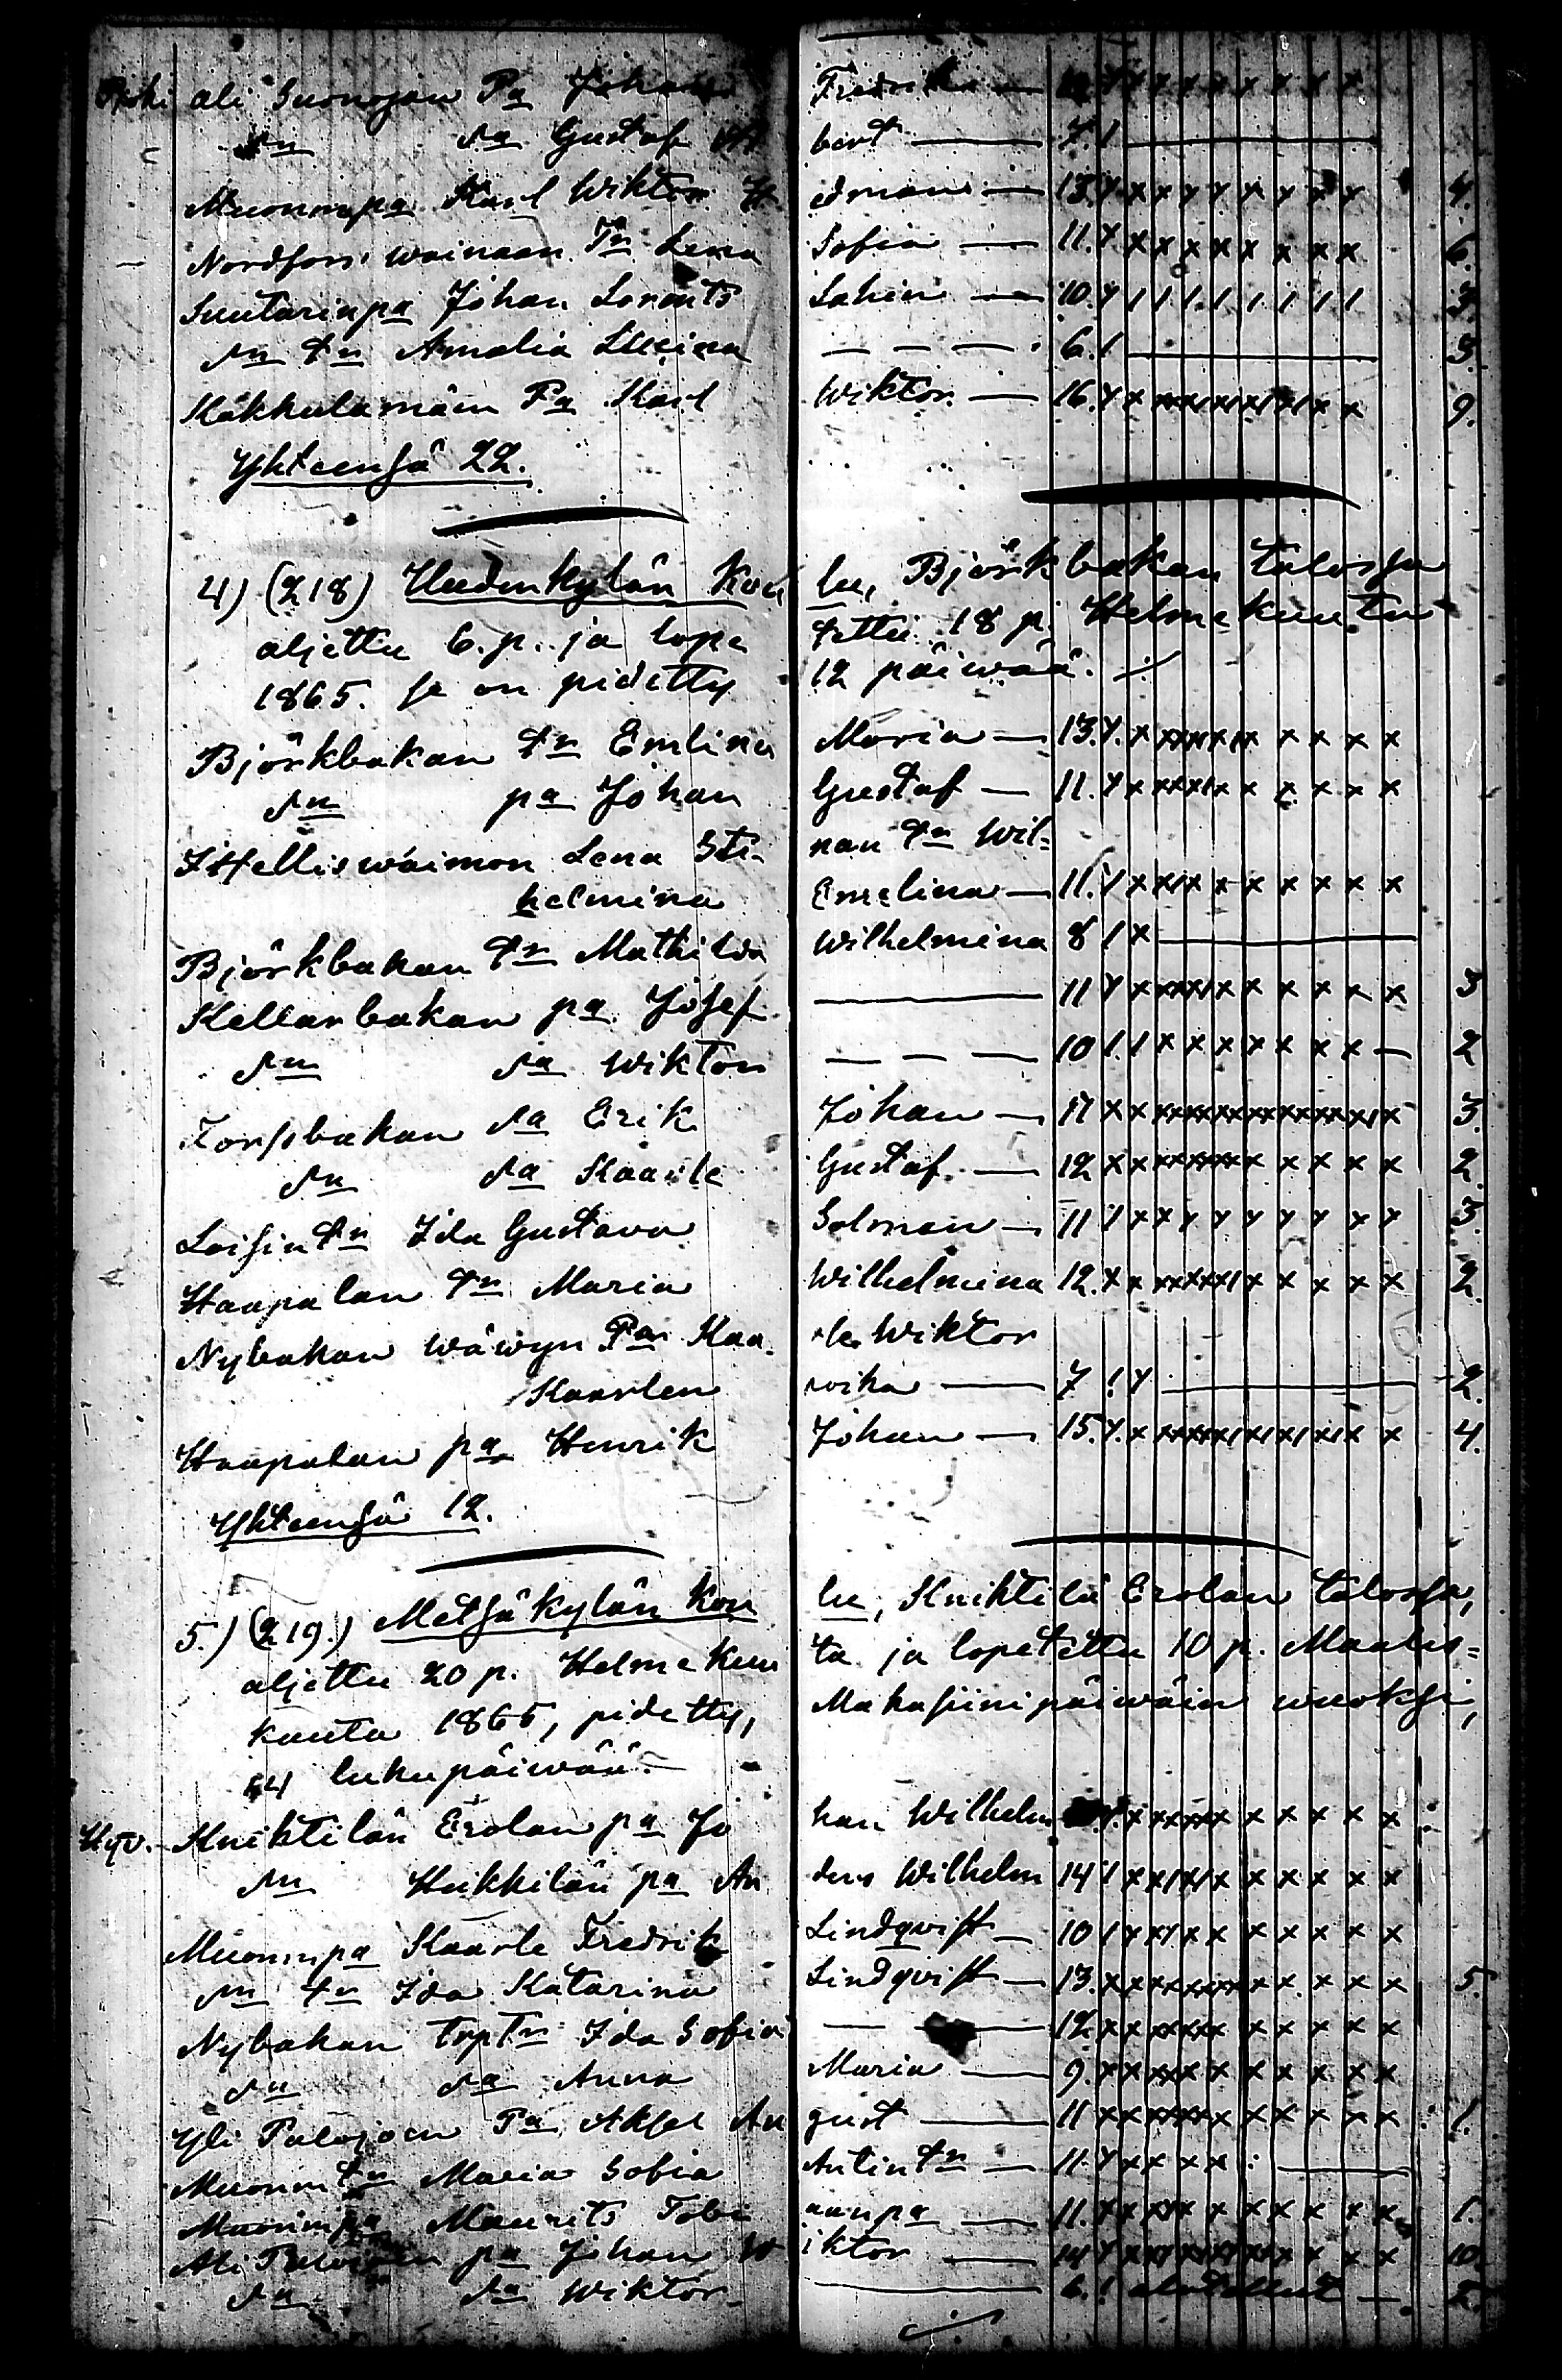 ali Suonojan Pa Johan Fredrik — x x x x x x x x
dn da Gustaf bert — 7. /
Muonmpa Karl Wiktor edman — 13. y x x y y y x y y 4.
Nordfors wainaan Tn Lena Sofia — 11. x x x x x x x x x 6.
Suutarinpa Johan Lorents Sahin — 10. y / / / / / / / / 3.
dn tn Amalia Lucina — — — 6. / 3.
Käkkulamäen Pa Karl Wiktor — 16. y x x x x x x x x 9.
Yhteensä 22.
4) (218) Uudenkylän Koulu, Björkbakan talossa
aljettu 6. p. ja lopetettu 18 p. Helmekuuta
1865. se on pidetty 12 päiwää. ./.
Björkbakan tn Emlina Maria — 13. y. x xxxxxx x x x x
dn pa Johan Gustaf — 11. y x xxxxx x x x x x
Itsellis waimon Lena Stinan tn Wil=
helmina Emelina — 11. y x xxx x x x x x x
Björkbakan tn Mathilda Wilhelmina 8 / x
Kellarbakan pa Josef — 11 y x xxxxx x x x x x 3
dn da Wiktor — — — 10 / / x x x x x x x — 2
Torpbakan da Erik Johan — 17 x x xxxxxxxxxxxxx x 3.
dn da Kaarle Gustaf — 12 x x xxxxxx x x x x x 2.
Loisin tn Ida Gustava Solman — 11 / x x y y y y y y y 3.
Haapalan tn Maria Wilhelmina 12. x x xxxxxx x x x x x 2.
Nybakan wäwyn Pa Kaarle Wiktor
Kaarlen poika — 7 / y 2.
Haapalan pa Henrik Johan — 15. y. x xxxxxxxxxxx x x 4.
Yhteensä 12.
5.) (219.) Metsäkylän Koulu, Knihtilä Erolan talossa,
aljettu 20 p. Helmekuuta ja lopetettu 10 p. Maalis=
kuuta 1865, pidetty, Makasiinipäiwäin wuoksi,
14 lukupäiwää.
Hyv. Knihtilän Erolan pa Johan Wilhelm y. x xxxxxx x x x x x
dn Heikkilän pa Anders Wilhelm 14 / x x x x x x x x x x
Muonmpa Kaarle Fredrik Lindqvist — 10 / y x y x x x x x x x
dn tn Ida Katarina Lindqvist — 13. x x x x x x x x x x x 5.
Nybakan trptn Ida Sofia — 12 x x xxxxxx x x x x x
dn da Anna Maria — 9. x x xxx x x x x x x
Yli Palojoen Pa Aksel August — 11 x x xxxxx x x x x x x 1.
Muonm tn Maria Sofia Antin tn — 11. y x x x x
Muonmpa Maurits Tobi aanpa — 11. x x x y x x x x x x x 1.
Ali Palojoen pa Johan Wiktor — 14 y x x x x x x x x x x 10.
dn da Wiktor — 6. / 2.
./.